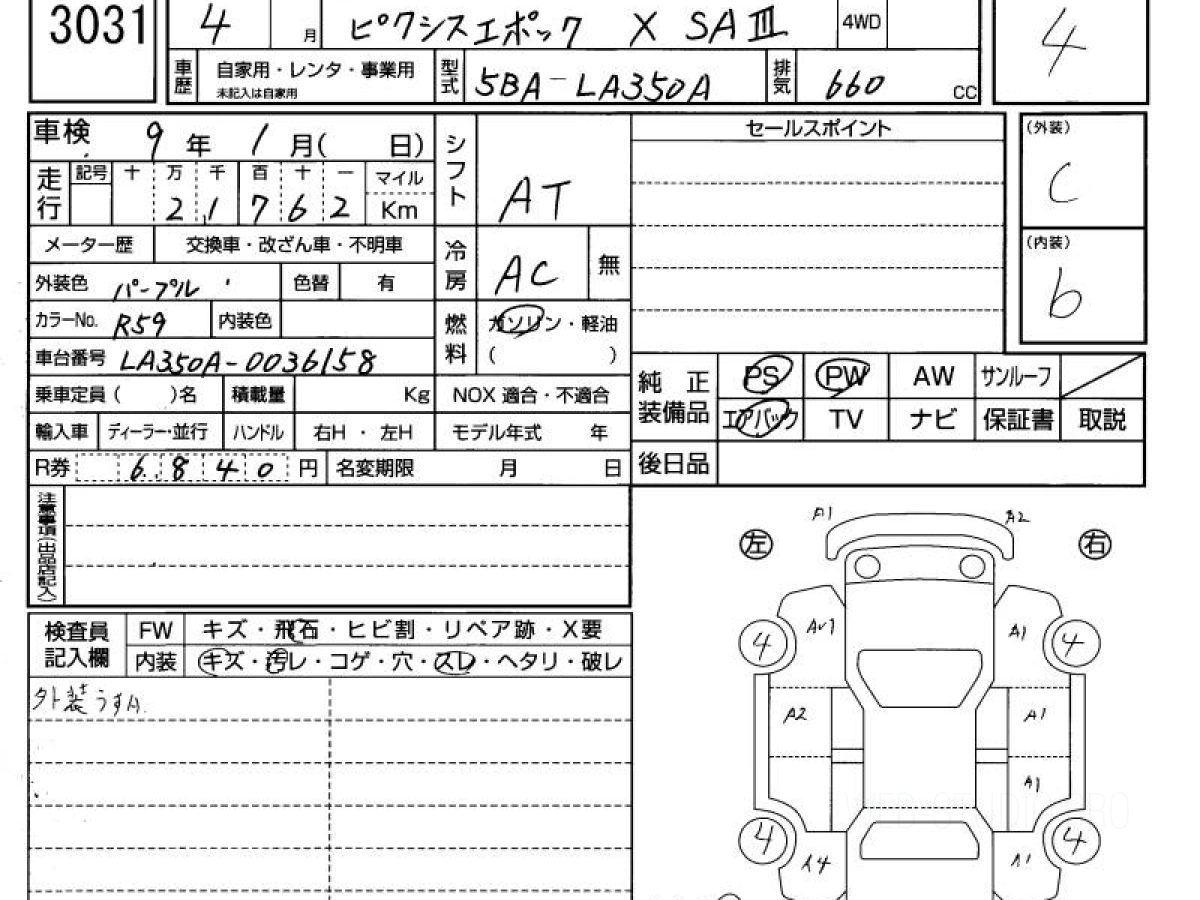 3031 4 月 ピクシスエポック X SAⅢ 4WD 4
車歴 自家用・レンタ・事業用 型式 5BA-LA350A 排気 660 CC
未記入は自家用
車検 9 年 1 月( 日) シフト AT セールスポイント (外装) C
走行 記号 十 万 千 百 十 一 マイル
2 1 7 6 2 Km
メーター歴 交換車・改ざん車・不明車 冷房 AC 無 (内装) b
外装色 パープル 色替 有
カラーNo. R59 内装色 燃料 ガソリン・軽油
( )
車台番号 LA350A-0036158
純正装備品 PS PW AW サンルーフ
乗車定員( )名 積載量 Kg NOX 適合・不適合
エアバック TV ナビ 保証書 取説
輸入車 ディーラー・並行 ハンドル 右H ・ 左H モデル年式 年
R券 6 8 4 0 円 名変期限 月 日 後日品
注意事項(出品店記入)
A1 A2
左 右
検査員記入欄 FW キズ・飛石・ヒビ割・リペア跡・X要
内装 キズ・汚レ・コゲ・穴・スレ・ヘタリ・破レ
4 A1 4
外装うすA.
A2 A1
A1
4 4
A4 A1